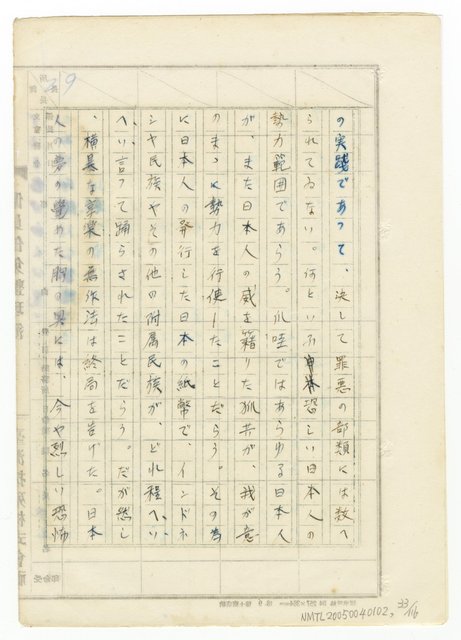 の実践であつて、決して罪悪の部類には数へ
られてゐない。何といふ恐しい日本人の
勢力範囲であらう。爪哇ではあらゆる日本人
が、また日本人の威を籍りた狐共が、我が意
のまゝに勢力を行使したことだらう。その為
に日本人の発行した日本の紙幣で、インドネ
シヤ民族やその他の附属民族が、どれ程へい
へい言つて踊らされたことだらう。だが然し
、横暴な享楽の無作法は終局を告げた。日本
人の夢の覚めた胸の奥には、今や烈しい恐怖
29
NMTL20050040102
33/116